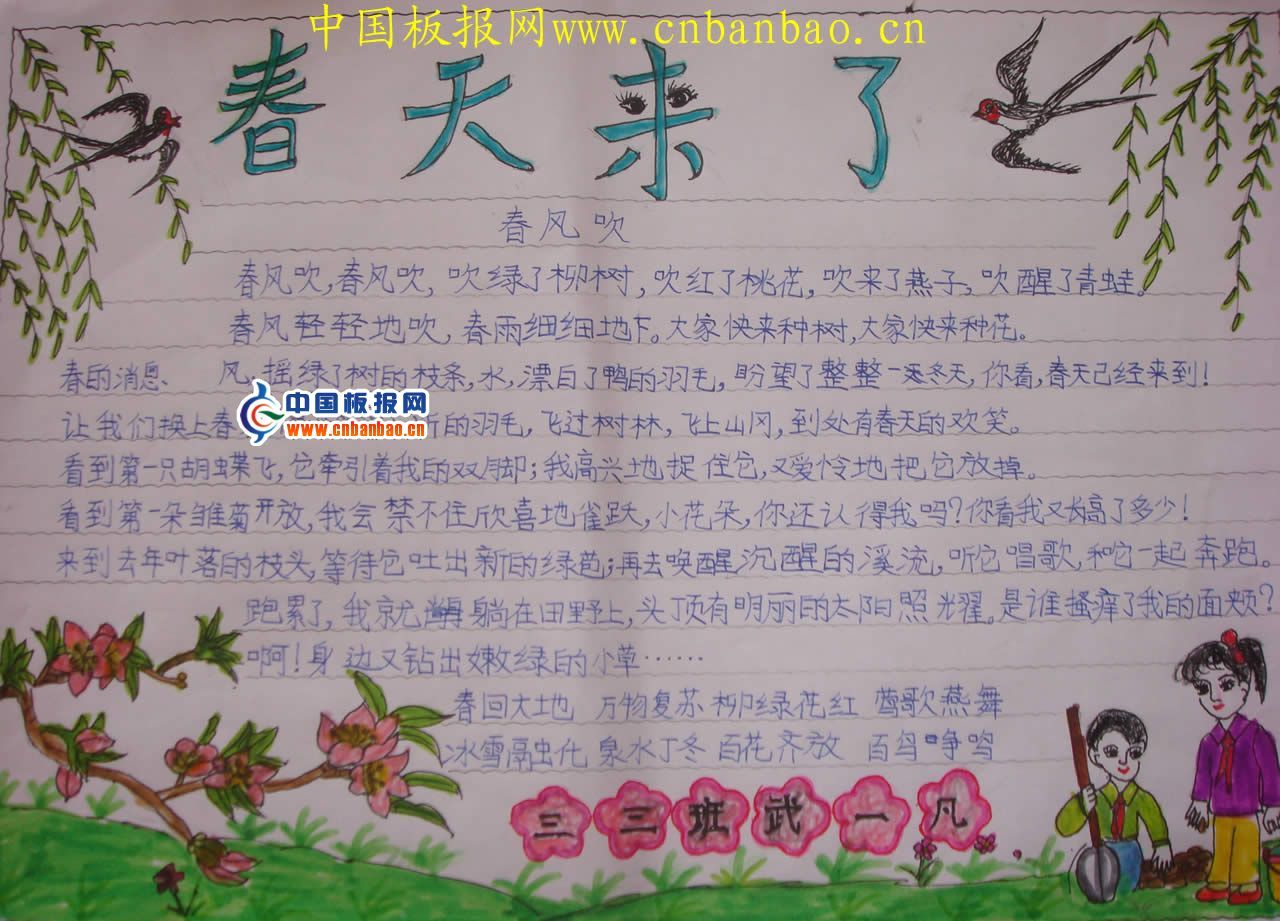 中国板报网www.cnbanbao.cn
春天来了
春风吹
春风吹,春风吹,吹绿了柳树,吹红了桃花,吹来了燕子,吹醒了青蛙。
春风轻轻地吹,春雨细细地下。大家快来种树,大家快来种花。
春的消息、 风,摇绿了树的枝条,水,漂白了鸭的羽毛,盼望了整整一冬天,你看,春天已经来到!
让我们换上春 新的羽毛,飞过树林,飞上山冈,到处有春天的欢笑。
中国板报网
www.cnbanbao.cn
看到第一只胡蝶飞,它牵引着我的双脚;我高兴地捉住它,又爱怜地把它放掉。
看到第一朵雏菊开放,我会禁不住欣喜地雀跃,小花朵,你还认得我吗?你看我又长高了多少!
来到去年叶落的枝头,等待它吐出新的绿色;再去唤醒沉醒的溪流,听它唱歌,和它一起奔跑。
跑累了,我就躺在田野上,头顶有明丽的太阳照耀。是谁搔痒了我的面颊?
啊!身边又钻出嫩绿的小草……
春回大地 万物复苏 柳绿花红 莺歌燕舞
冰雪融化 泉水丁冬 百花齐放 百鸟争鸣
三三班武一凡